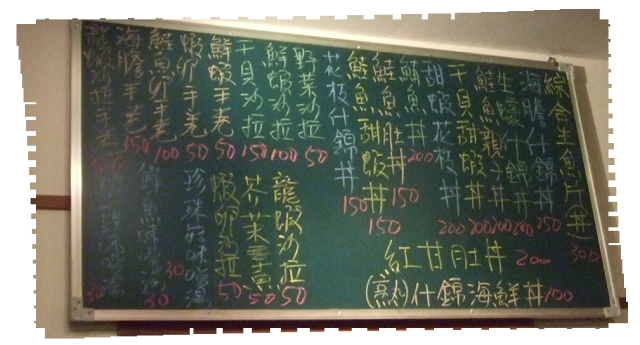 綜合生魚片丼 300
海膽什錦丼 250
生蠔什錦丼 200
鮭魚親子丼 200
干貝甜蝦丼 200
甜蝦花枝丼 200
鮪魚丼 200
鮭魚肚丼 150
鮭魚甜蝦丼 150
花枝什錦丼 150
紅甘肚丼 200
(熟)什錦海鮮丼 100
野菜沙拉 50
鮮蝦沙拉 100
干貝沙拉 150
鮮蝦手卷 50
蝦卵手卷 50
鮭魚卵手卷 100
海膽手卷 150
龍蝦沙拉手卷
龍蝦沙拉 50
芥茉章魚 50
蝦卵沙拉 50
珍珠菇味噌湯 30
鮮魚味噌湯 30